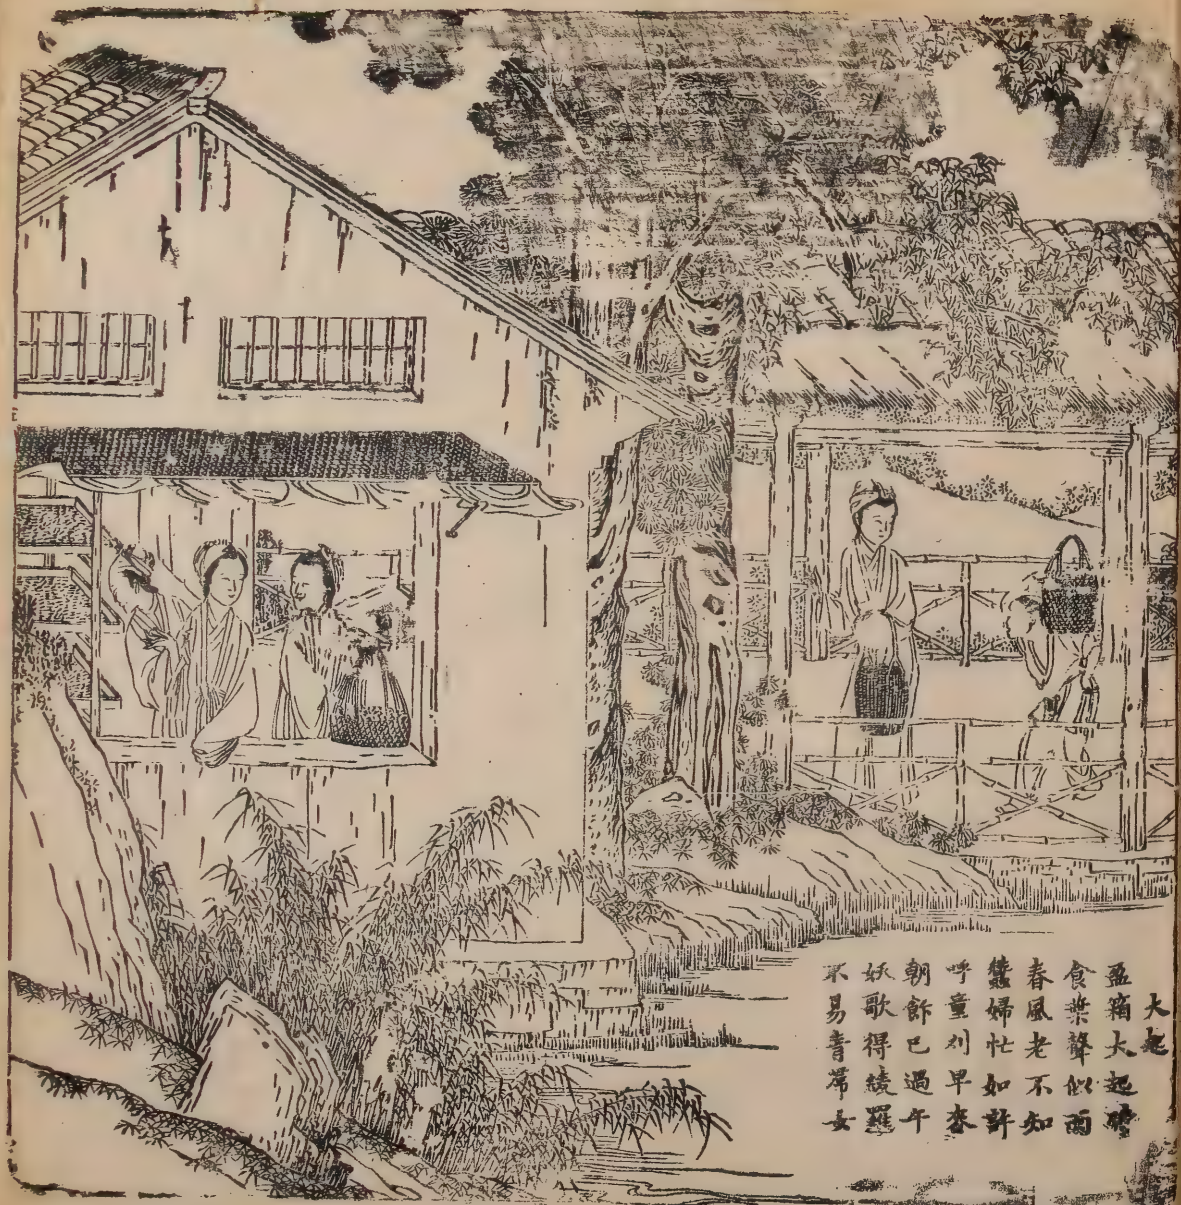 大起
盈箱大起時
食葉聲似雨
春風老不知
蠶婦忙如許
呼童刈早麥
朝已過午
妖歌得綾羅
不易青女